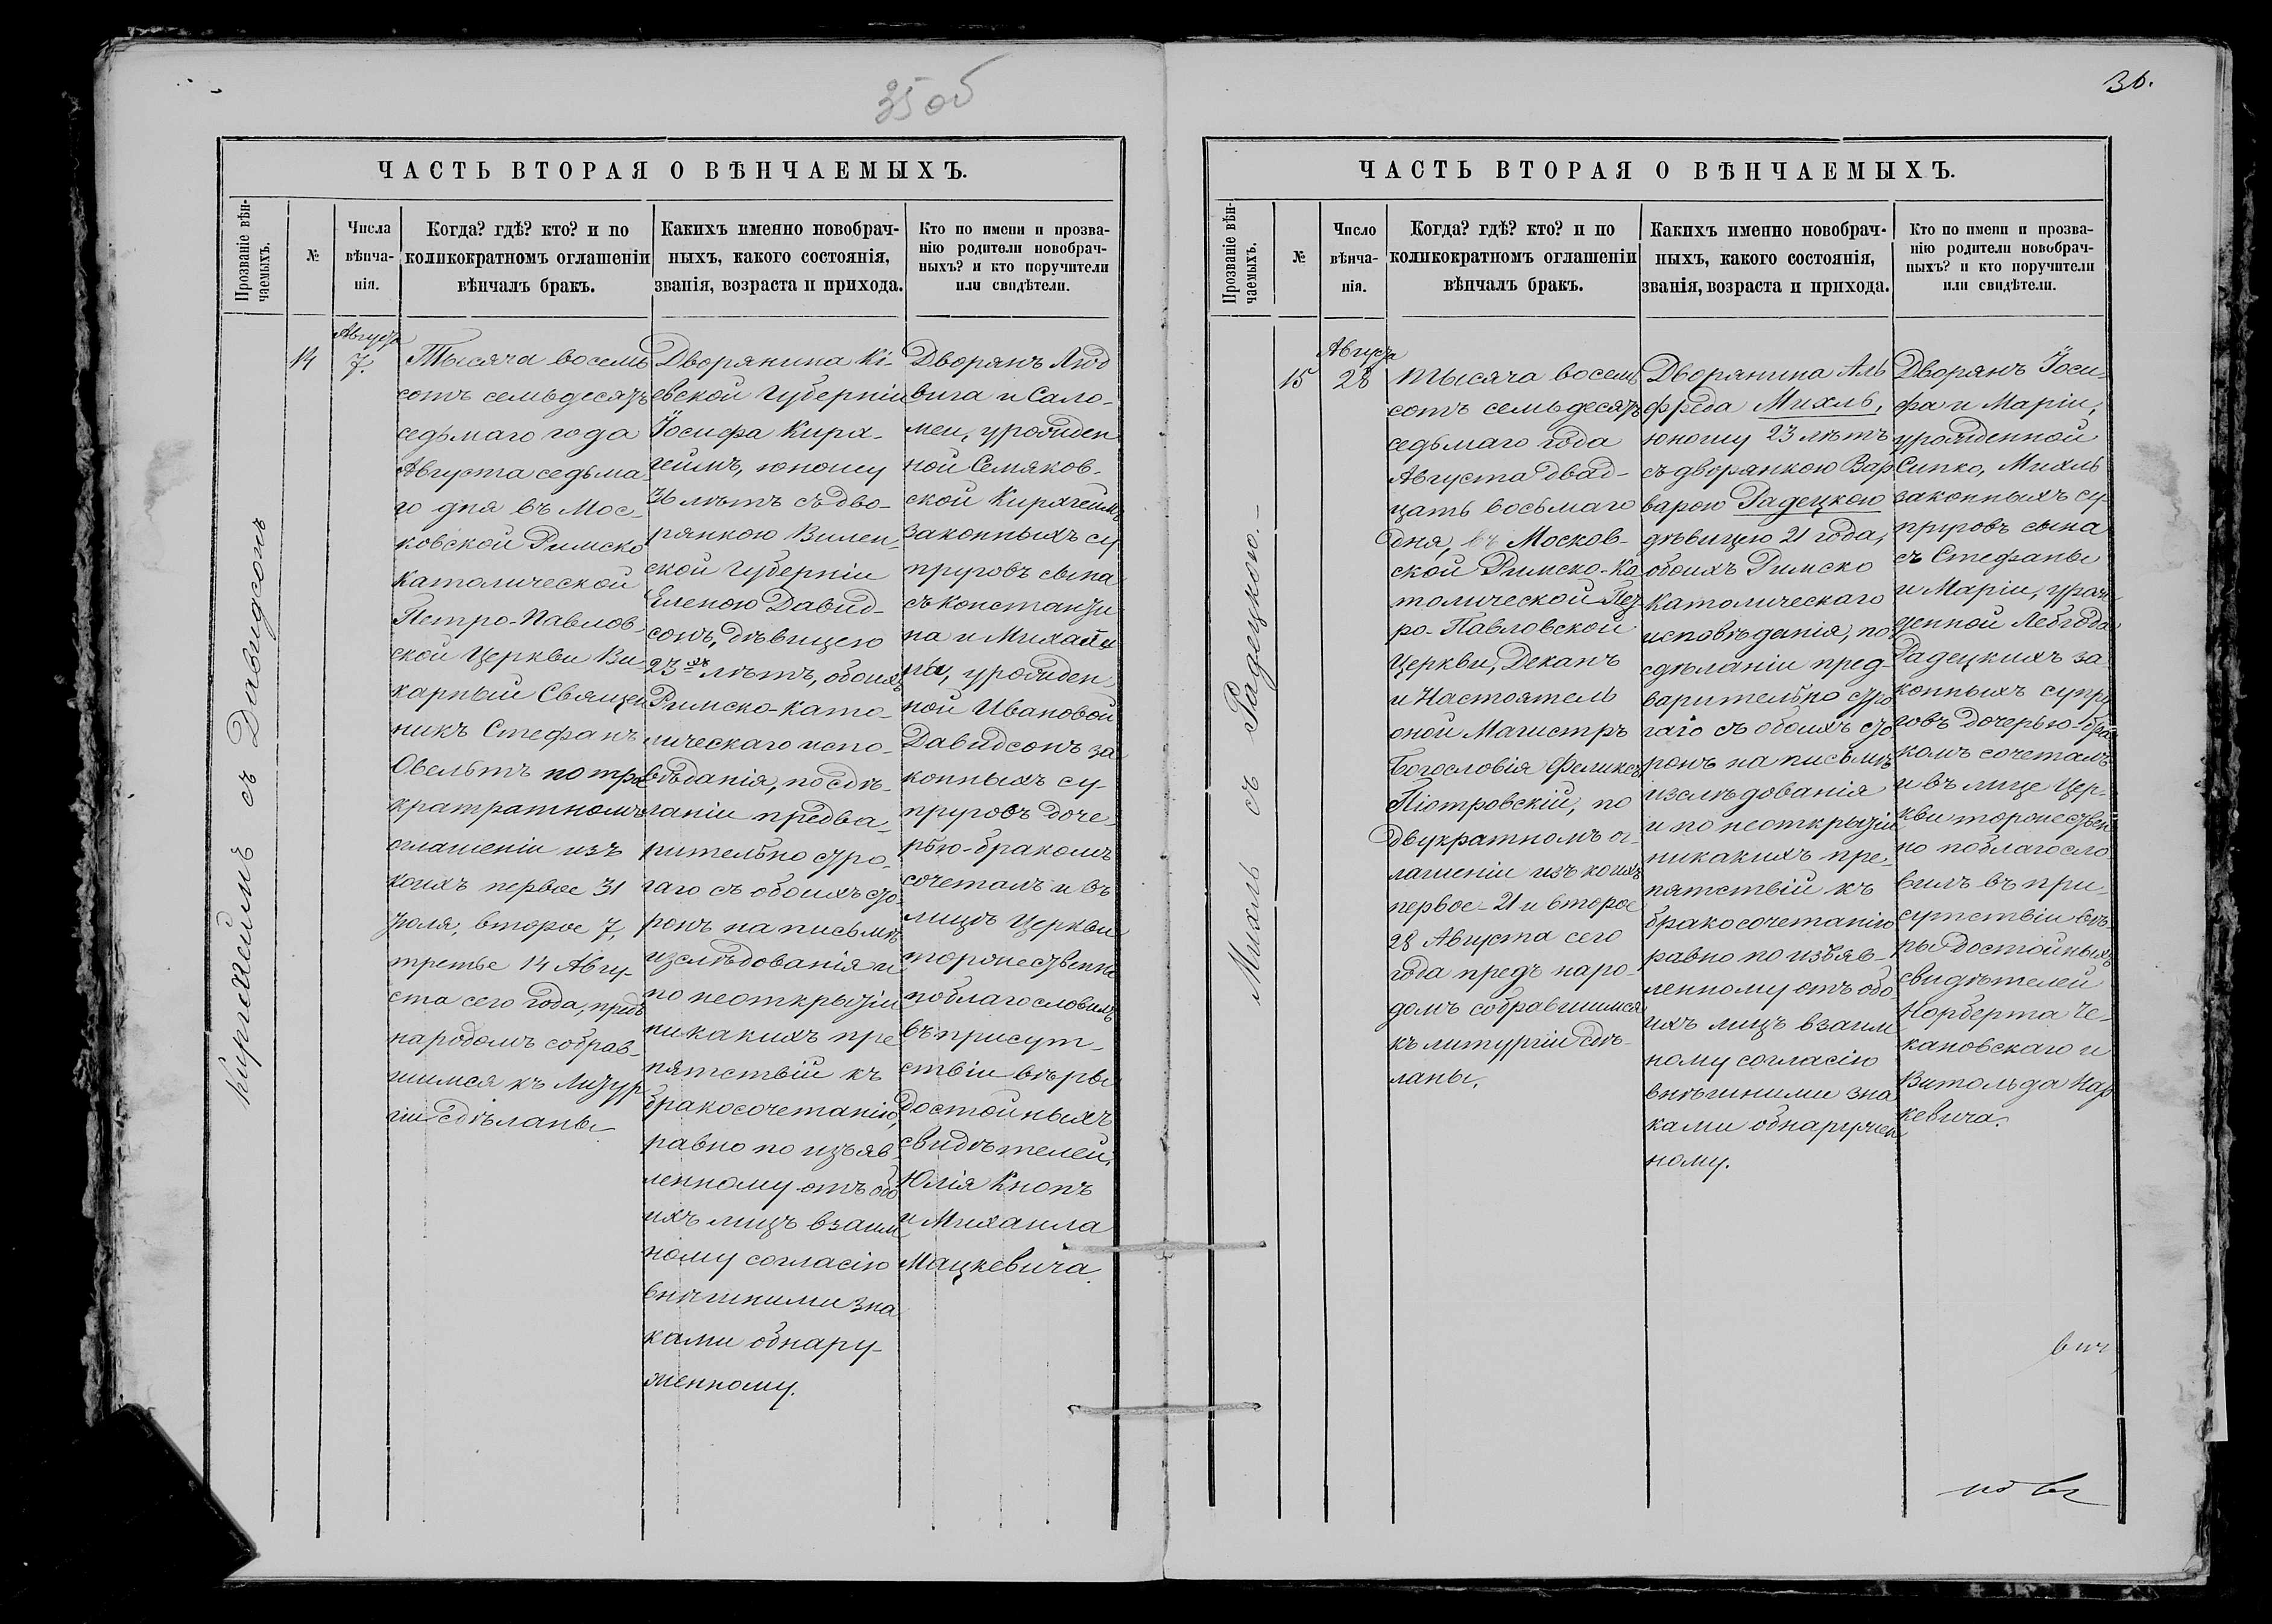 35 об
ЧАСТЬ ВТОРАЯ О ВѢНЧАЕМЫХЪ.
Прозваніе вѣн-
чаемыхъ.
№
Числа
вѣнча-
нія.
Когда? гдѣ? кто? и по
коликократномъ оглашеніи
вѣнчалъ бракъ.
Какихъ именно новобрач-
ныхъ, какого состоянія,
званія, возраста и прихода.
Кто по имени и прозва-
нію родители новобрач-
ныхъ? и кто поручители
или свидѣтели.
Киркгеймъ съ Давидсонъ
14
Августа
7.
Тысяча восемь
сотъ семьдесятъ
седьмаго года
Августа седьма-
го дня въ Мос-
ковской Римско
Католической
Петро-Павлов-
ской Церкви Ви-
карный Священ
никъ Стефанъ
Овельтъ по трех
кратратномъ
оглашеніи изъ
коихъ первое 31
Іюля, второе 7,
третье 14 Авгу-
ста сего года, предъ
народомъ собрав-
шимся къ Литур
гіи сдѣланы
Дворянина Кі-
евской Губерніи
Іосифа Кирх-
геймъ, юношу
36 лѣтъ съ дво-
рянкою Вилен-
ской Губерніи
Еленою Давид-
сонъ, дѣвицею
23хъ лѣтъ, обоихъ
Римско-Като-
лическаго испо-
вѣданія, по сдѣ-
ланіи предва-
рительно стро-
гаго съ обоихъ сто-
ронъ на письмѣ
изслѣдованія и
по неоткрытіи
никакихъ пре
пятствій къ
бракосочетанію,
равно по изъяв
ленному отъ обо
ихъ лицъ взаим
ному согласію
внѣшними зна
ками обнару-
женному.
Дворянъ Люд
вига и Сало-
меи, урожден
ной Семяков-
ской Кирхгеймъ
законныхъ су
пруговъ сына
съ Константи
на и Михали
ны, урожден
ной Ивановой
Давидсонъ за
конныхъ су-
пруговъ доче-
рью-бракомъ
сочеталъ и въ
лицѣ Церкви
торжественно
поблагословилъ
въ присут-
ствіи вѣры
достойныхъ
свидѣтелей,
Юлія Кнопъ
и Михаила
Мацкевича.
36.
ЧАСТЬ ВТОРАЯ О ВѢНЧАЕМЫХЪ.
Прозваніе вѣн-
чаемыхъ.
№
Число
вѣнча-
нія.
Когда? гдѣ? кто? и по
коликократномъ оглашеніи
вѣнчалъ бракъ.
Какихъ именно новобрач-
ныхъ, какого состоянія,
званія, возраста и прихода.
Кто по имени и прозва-
нію родители новобрач-
ныхъ? и кто поручители
или свидѣтели.
Михль съ Радецкою.-
15
Августа
28
Тысяча восемь
сотъ семьдесятъ
седьмаго года
Августа двад-
цать восьмаго
дня, въ Москов-
ской Римско-Ка
толической Пет
ро-Павловской
Церкви, Деканъ
и Настоятель
оной Магистръ
Богословія Феликсъ
Піотровскій, по
двукратномъ ог-
лашеніи изъ коихъ
первое-21 и второе
28 Августа сего
года предъ наро-
домъ собравшимся
къ литургіи сдѣ-
ланы.
Дворянина Аль
фреда Михль,
юношу 23 лѣтъ
съ дворянкою Вар
варою Радецкою
дѣвицею 21 года,
обоихъ Римско
Католическаго
исповѣданія, по
сдѣланіи пред-
варительно стро
гаго съ обоихъ сто
ронъ на письмѣ
изслѣдованія
и по неоткрытіи
никакихъ пре-
пятствій къ
бракосочетанію
равно по изъяв-
ленному отъ обо-
ихъ лицъ взаим
ному согласію
внѣшними зна
ками обнаружен
ному.
Дворянъ Іоси-
фа и Маріи,
урожденной
Сипко, Михль
законныхъ су-
пруговъ сына
съ Стефаны
и Маріи, урож
денной Лебгода
Радецкихъ за
конныхъ супру
говъ дочерью-бра
комъ сочеталъ
и въ лице Цер-
кви торжествен
но поблагосло
вилъ въ при
сутствіи вѣ-
ры достойныхъ
свидѣтелей
Норберта Че-
кановскаго и
Витольда Нар
кевича.
вич